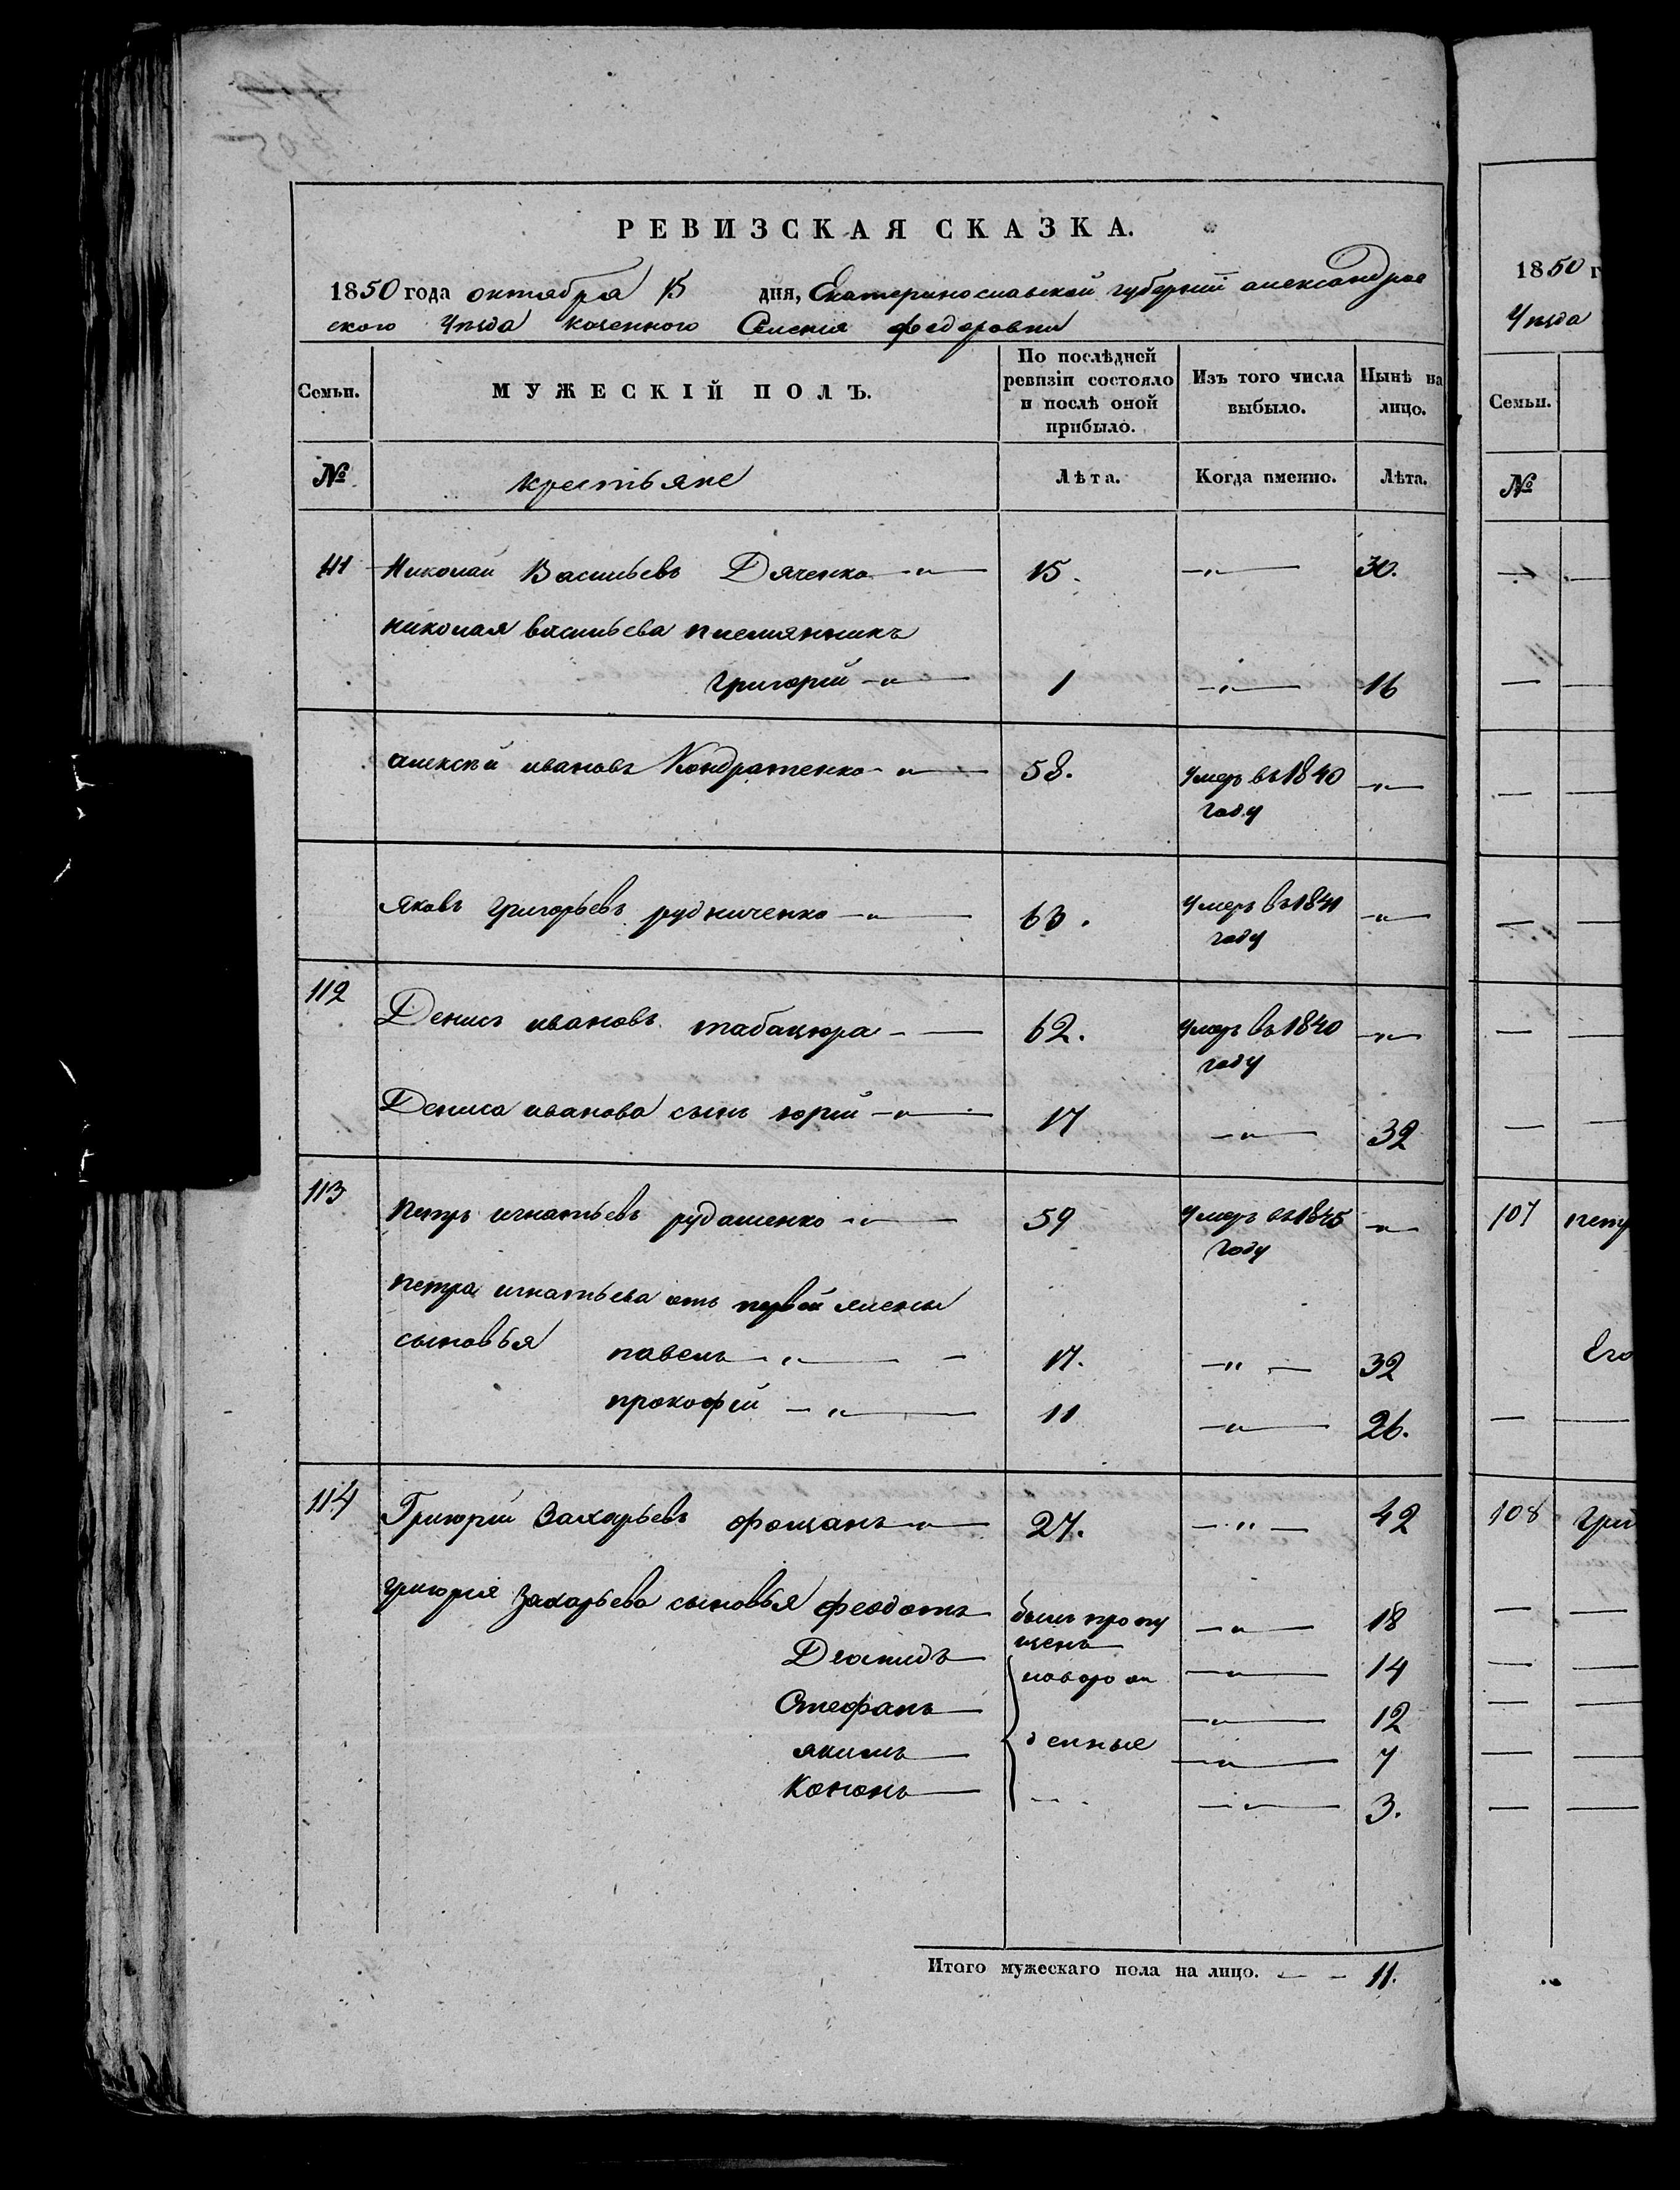 РЕВИЗСКАЯ СКАЗКА.
1850 года октября 15 дня, Екатеринославской губернии александров
ского уѣзда козенного Селения федоровки
Семьи. МУЖЕСКІЙ ПОЛЪ. По послѣдней ревизіи состояло и послѣ оной прибыло. Изъ того числа выбыло. Нынѣ на лицо.
№ крестьяне Лѣта. Когда именно. Лѣта.
111 Николай Васильевъ Дяченко 15. 30.
николая васильева племянникъ
григорій 1 16
алексѣй ивановъ Кондратенко 58. умеръ въ 1840
году
яковъ григорьевъ рудниченко 63. умеръ въ 1841
году
112 Денисъ ивановъ табацюра 62. умеръ въ 1840
году
Дениса иванова сынъ юрій 17 32
113 петръ игнатьевъ рудашенко 59 умеръ въ 1845
году
петра игнатьева отъ первой жены
сыновья павелъ 17. 32
прокофій 11 26.
114 Григорій Захарьевъ фощанъ 27. 42
григорія Захарьева сыновья феодотъ былъ пропу 18
щенъ
Леонидъ новорож 14
Стефанъ 12
якимъ денные 7
Кононъ 3.
Итого мужескаго пола на лицо. 11.
1850 г
уѣзда
Семьи.
№
107 петр
Его
108 гри